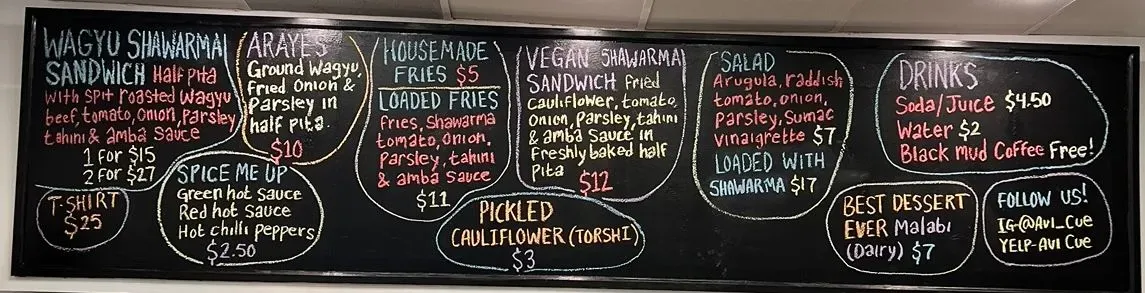 WAGYU SHAWARMA
SANDWICH Half Pita
with spit roasted wagyu
beef, tomato, onion, parsley
tahini & amba sauce
1 for $15
2 for $27
T-SHIRT
$25
ARAYES
Ground Wagyu,
Fried Onion &
Parsley in
half pita.
$10
SPICE ME UP
Green hot sauce
Red hot sauce
Hot chilli peppers
$2.50
HOUSEMADE
FRIES $5
LOADED FRIES
fries, shawarma
tomato, onion,
Parsley, tahini
& amba sauce
$11
PICKLED
CAULIFLOWER (TORSHI)
$3
VEGAN SHAWARMA
SANDWICH Fried
cauliflower, tomato,
onion, parsley, tahini
& amba sauce in
freshly baked half
Pita
$12
SALAD
Arugula, raddish
tomato, onion,
parsley, sumac
vinaigrette $7
LOADED WITH
SHAWARMA $17
DRINKS
Soda/Juice $4.50
Water $2
Black mud Coffee Free!
BEST DESSERT
EVER Malabi
(Dairy) $7
FOLLOW US!
IG-@AVI_Cue
YELP-AVI Cue